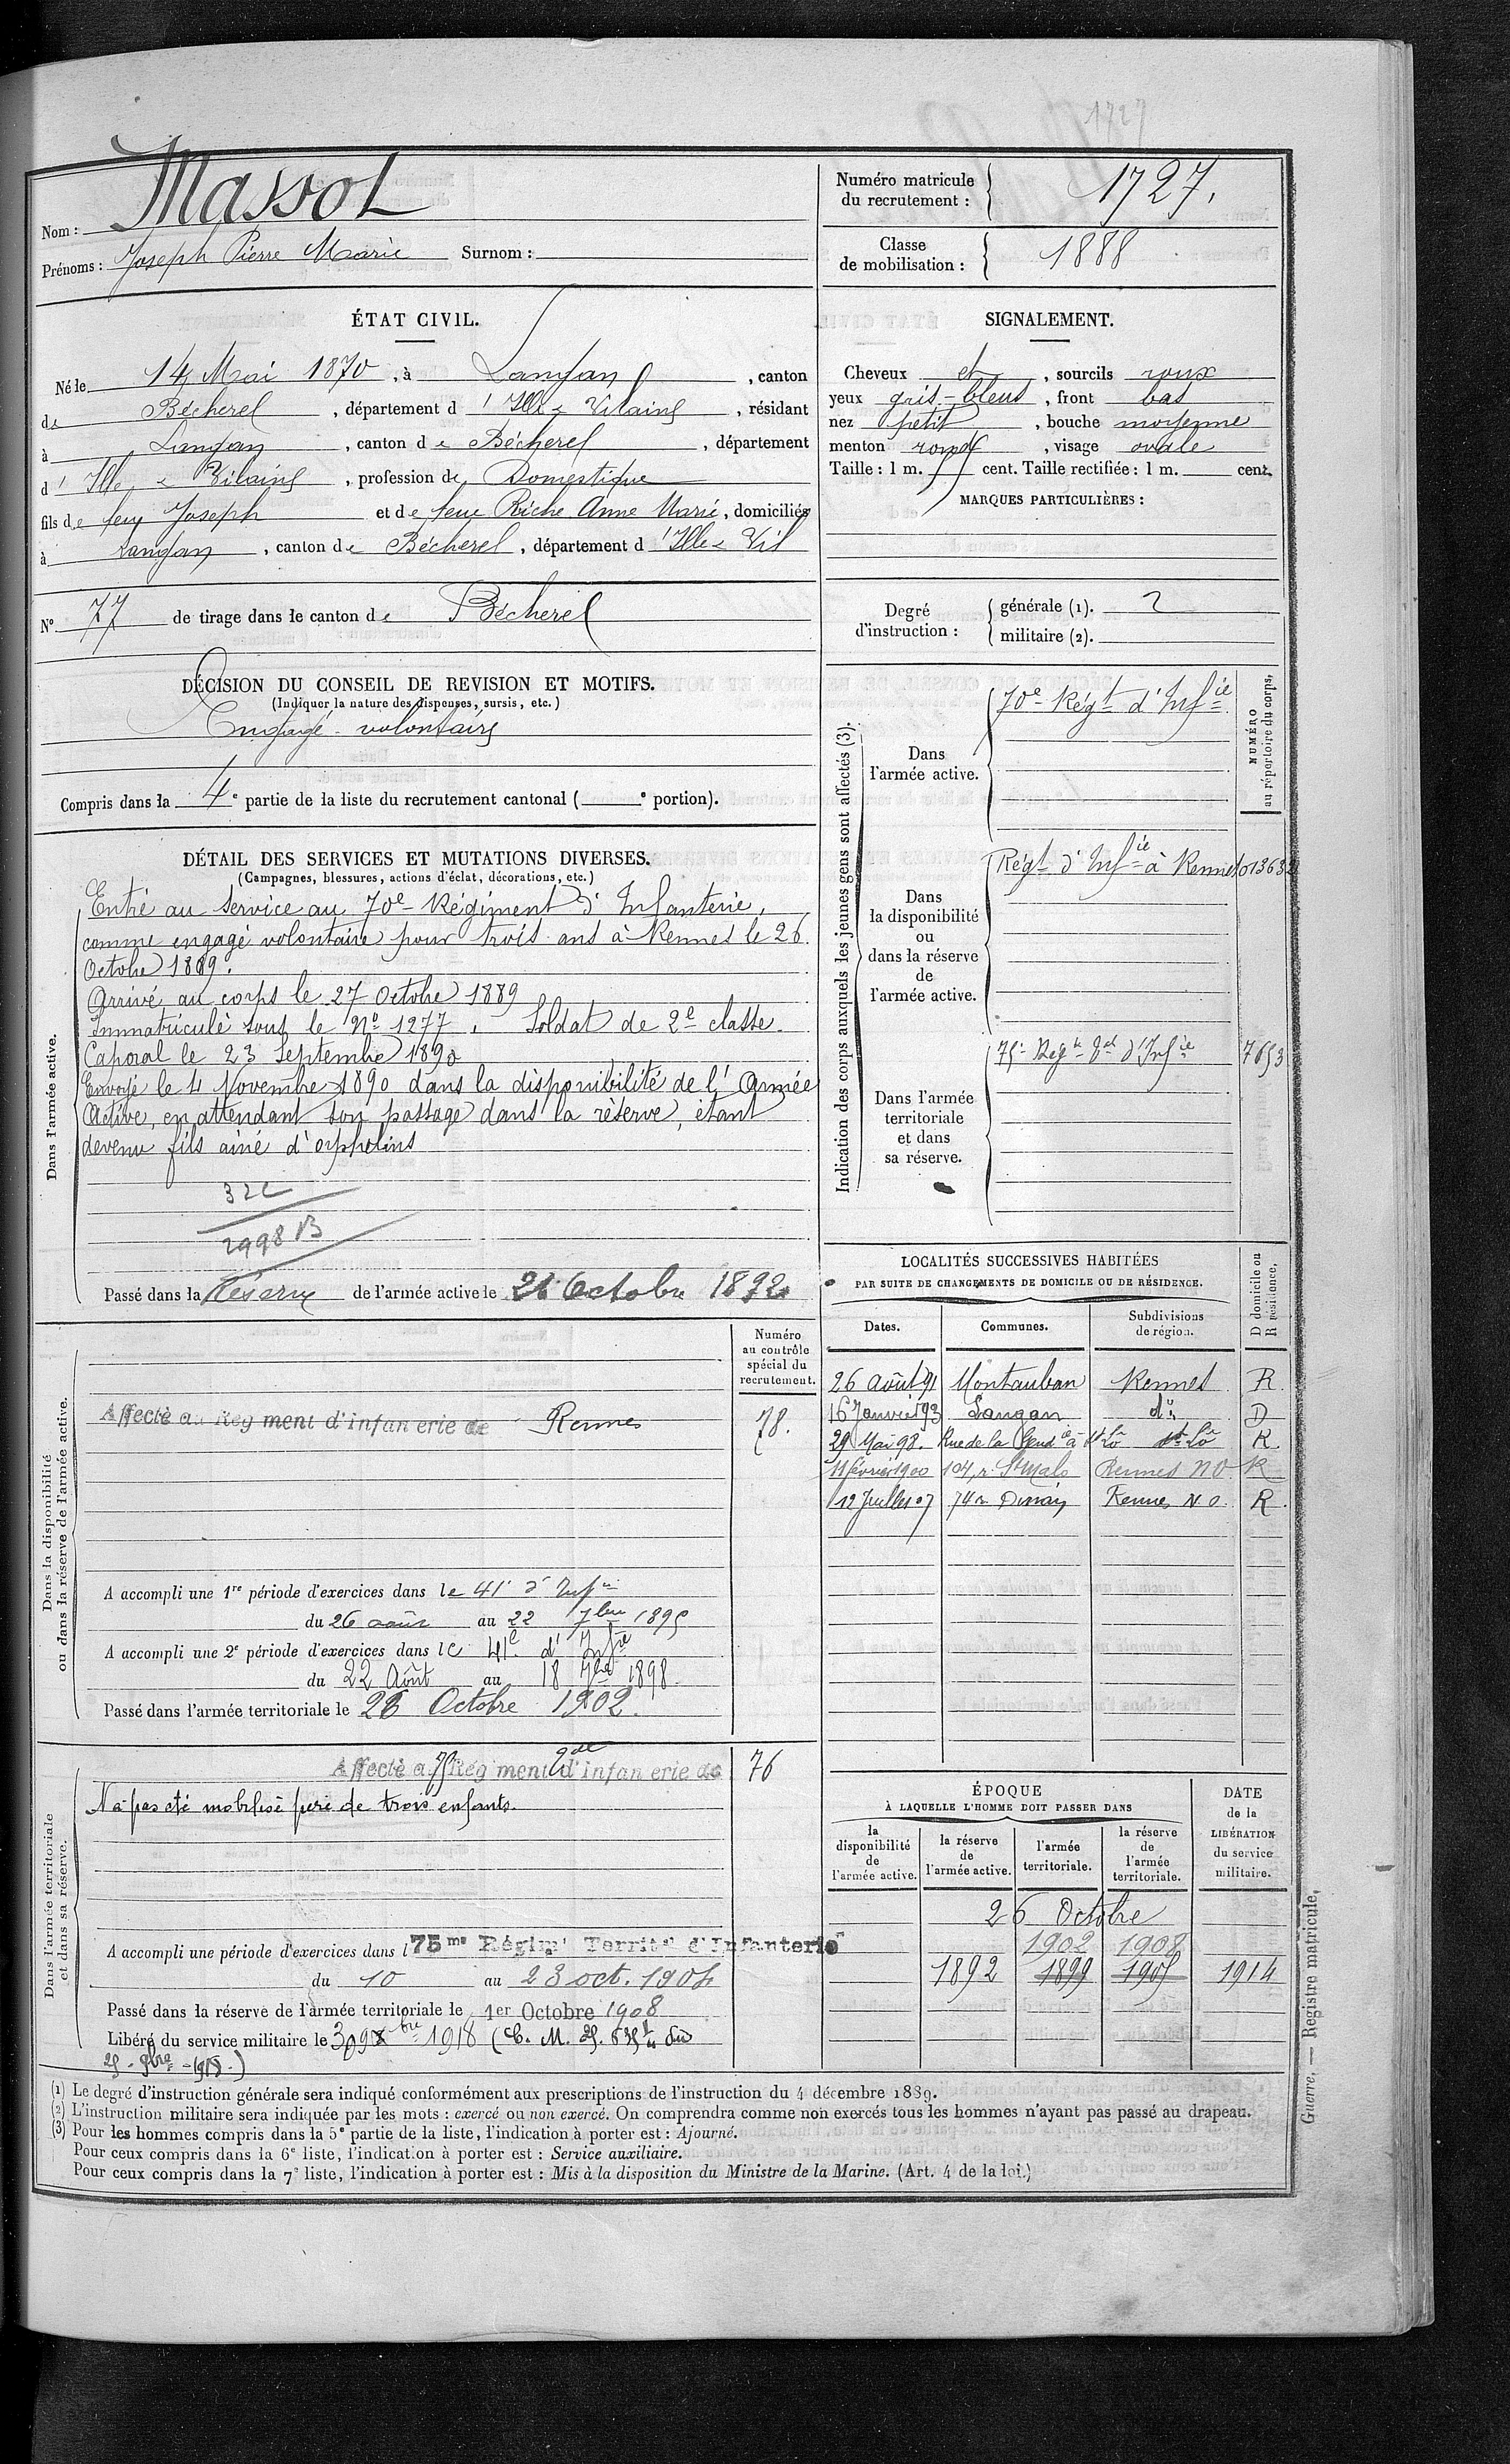 1727
Nom : Massot
Prénoms : Joseph Pierre Marie Surnom :
Numéro matricule du recrutement : 1727.
Classe de mobilisation : 1888
ÉTAT CIVIL.
Né le 14 Mai 1870, à Langan, canton
de Bécherel, département d'Ille & Vilaine, résidant
à Langan, canton de Bécherel, département
d'Ille & Vilaine, profession de Domestique
fils de feu Joseph et de feue Riche Anne Marie, domiciliés
à Langan, canton de Bécherel, département d'Ille & Vil
N° 77 de tirage dans le canton de Bécherel
SIGNALEMENT.
Cheveux et, sourcils roux
yeux gris-bleus, front bas
nez petit, bouche moyenne
menton rond, visage ovale
Taille : 1 m. cent. Taille rectifiée : 1 m. cent.
MARQUES PARTICULIÈRES :
Degré d'instruction : générale (1). 2
militaire (2).
DÉCISION DU CONSEIL DE REVISION ET MOTIFS.
(Indiquer la nature des dispenses, sursis, etc.)
Engagé volontaire
Compris dans la 4e partie de la liste du recrutement cantonal ( e portion).
DÉTAIL DES SERVICES ET MUTATIONS DIVERSES.
(Campagnes, blessures, actions d'éclat, décorations, etc.)
Dans l'armée active.
Entré au service au 70e Régiment d'Infanterie,
comme engagé volontaire pour trois ans à Rennes le 26
Octobre 1889.
Arrivé au corps le 27 Octobre 1889
Immatriculé sous le No 1277. Soldat de 2e classe.
Caporal le 23 Septembre 1890
Envoyé le 4 Novembre 1890 dans la disponibilité de l'Armée
Active, en attendant son passage dans la réserve, étant
devenu fils ainé d'orphelins
2998 B
Passé dans la Réserve de l'armée active le 26 Octobre 1892
Indication des corps auxquels les jeunes gens sont affectés (3).
NUMÉRO au répertoire du corps.
Dans l'armée active.
70e Régt d'Infie
Dans la disponibilité ou dans la réserve de l'armée active.
Régt d'Infie à Rennes
Dans l'armée territoriale et dans sa réserve.
75e Regt Tal d'Infie 7653
LOCALITÉS SUCCESSIVES HABITÉES
PAR SUITE DE CHANGEMENTS DE DOMICILE OU DE RÉSIDENCE.
Dates. Communes. Subdivisions de région. D domicile ou R résidence.
26 août 91 Montauban Rennes R
16 Janvier 93 Langan do D
29 Mai 98. Rue de la Gendie à St Lô St Lô R.
11 février 1900 104, r. St Malo Rennes N O. R
12 Juillet 07 74 r. Dinan Rennes N O. R.
Dans la disponibilité ou dans la réserve de l'armée active.
Numéro au contrôle spécial du recrutement.
Affecté au Régiment d'infanterie de Rennes 78.
A accompli une 1re période d'exercices dans le 41e d'Infie
du 26 août au 22 7bre 1895
A accompli une 2e période d'exercices dans le 41e d'Infie
du 22 Août au 18 7bre 1898.
Passé dans l'armée territoriale le 26 Octobre 1902.
Dans l'armée territoriale et dans sa réserve.
Affecté au 75 Régiment Tal d'infanterie de 76
N'a pas été mobilisé père de trois enfants.
A accompli une période d'exercices dans l 75me Régimt Territal d'Infanterie
du 10 au 23 oct. 1904
Passé dans la réserve de l'armée territoriale le 1er Octobre 1908
Libéré du service militaire le bre 1918 (C. M. du
ÉPOQUE
À LAQUELLE L'HOMME DOIT PASSER DANS
la disponibilité de l'armée active. la réserve de l'armée active. l'armée territoriale. la réserve de l'armée territoriale.
DATE de la LIBÉRATION du service militaire.
26 Octobre
1902 1908
1892 1899 1905 1914
(1) Le degré d'instruction générale sera indiqué conformément aux prescriptions de l'instruction du 4 décembre 1889.
(2) L'instruction militaire sera indiquée par les mots : exercé ou non exercé. On comprendra comme non exercés tous les hommes n'ayant pas passé au drapeau.
(3) Pour les hommes compris dans la 5e partie de la liste, l'indication à porter est : Ajourné.
Pour ceux compris dans la 6e liste, l'indication à porter est : Service auxiliaire.
Pour ceux compris dans la 7e liste, l'indication à porter est : Mis à la disposition du Ministre de la Marine. (Art. 4 de la loi.)
Guerre. — Registre matricule.